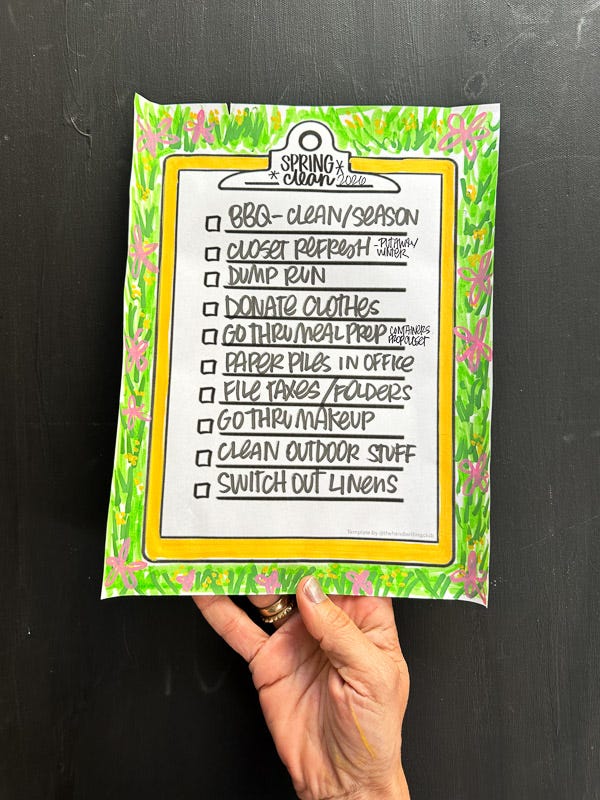 SPRING
clean 2026
BBQ- CLEAN/SEASON
CLOSET REFRESH -PUT AWAY
WINTER
DUMP RUN
DONATE CLOTHES
GO THRU MEAL PREP CONTAINERS
PREP CLOSET
PAPER PILES IN OFFICE
FILE TAXES/FOLDERS
GO THRU MAKEUP
CLEAN OUTDOOR STUFF
SWITCH OUT LINENS
Template by @thehandwritingclub